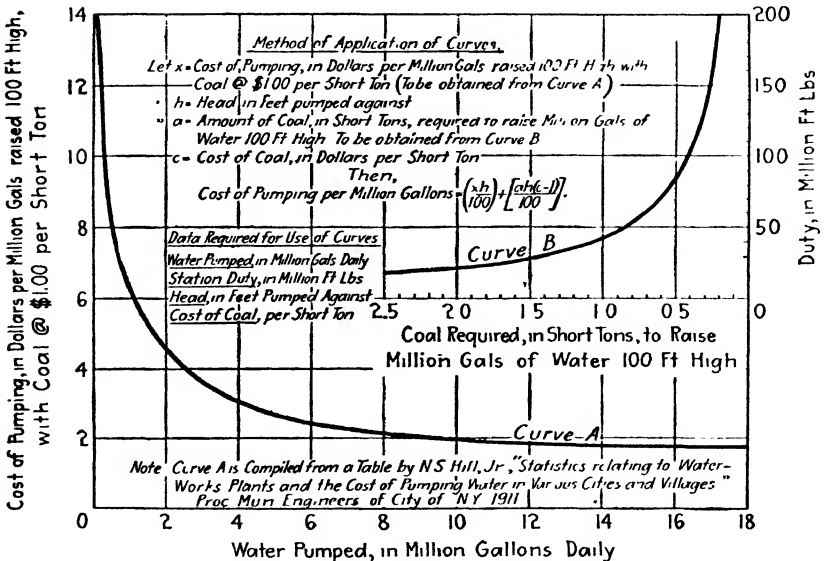 Cost of Pumping, in Dollars per Million Gals raised 100 Ft High,
with Coal @ $1.00 per Short Ton
14
12
10
8
6
4
2
0
Method of Application of Curves.
Let x = Cost of Pumping, in Dollars per Million Gals raised 100 Ft High with
Coal @ $1.00 per Short Ton (To be obtained from Curve A)
" h = Head in Feet pumped against
" a = Amount of Coal, in Short Tons, required to raise Million Gals of
Water 100 Ft High To be obtained from Curve B
c = Cost of Coal, in Dollars per Short Ton
Then,
Cost of Pumping per Million Gallons = (xh/100) + [ah(c-1)/100].
Data Required for Use of Curves
Water Pumped, in Million Gals Daily
Station Duty, in Million Ft Lbs
Head, in Feet Pumped Against
Cost of Coal, per Short Ton
Curve B
200
150
100
50
0
Duty, in Million Ft Lbs
2.5 2.0 1.5 1.0 0.5
Coal Required, in Short Tons, to Raise
Million Gals of Water 100 Ft High
Curve A
Note Curve A is Compiled from a Table by N S Hill, Jr, "Statistics relating to Water-
Works Plants and the Cost of Pumping Water in Various Cities and Villages"
Proc Mun Engineers of City of N Y 1911
0 2 4 6 8 10 12 14 16 18
Water Pumped, in Million Gallons Daily